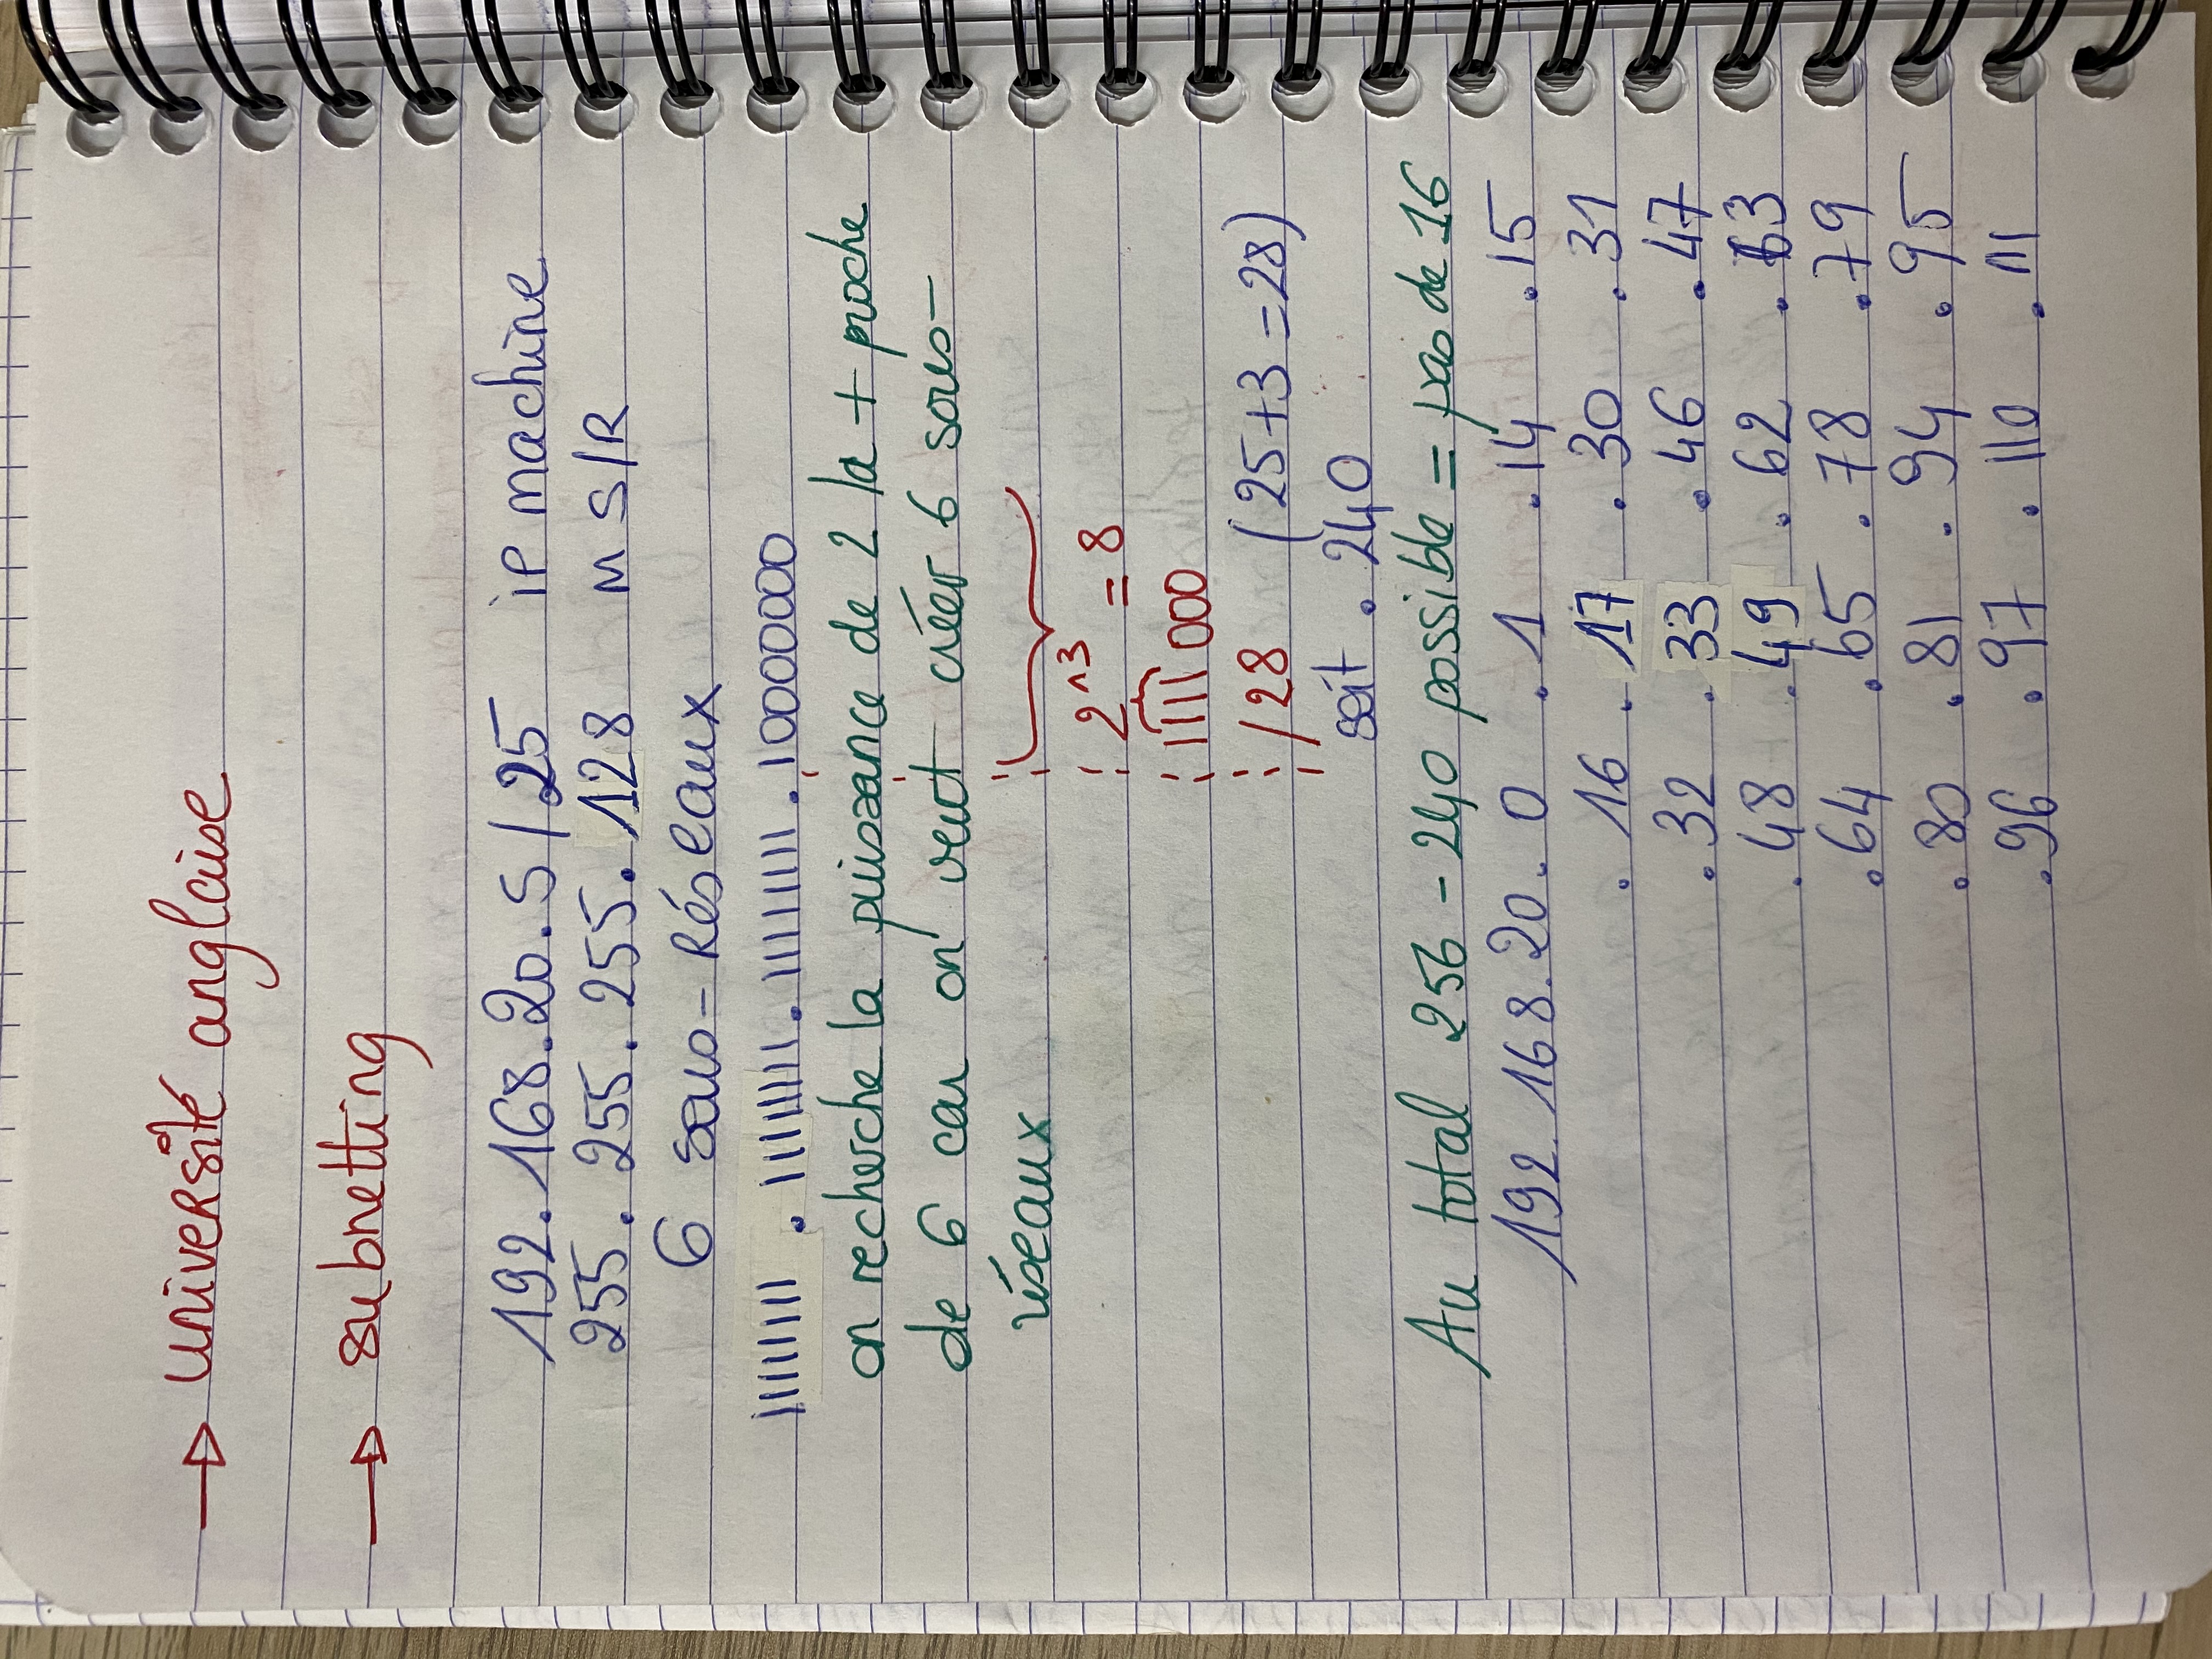 → université anglaise
→ subnetting
192.168.20.5/25 ip machine
255.255.255.128 M S/R
6 sous-Réseaux
11111111.11111111.111111111.10000000
on recherche la puissance de 2 la + proche
de 6 car on veut créer 6 sous-
réseaux
2^3 = 8
1111000
/28 (25+3=28)
soit .240
Au total 256-240 possible = pas de 16
192.168.20.0 .1 .14 .15
.16 .17 .30 .31
.32 .33 .46 .47
.48 .49 .62 .63
.64 .65 .78 .79
.80 .81 .94 .95
.96 .97 .110 .111